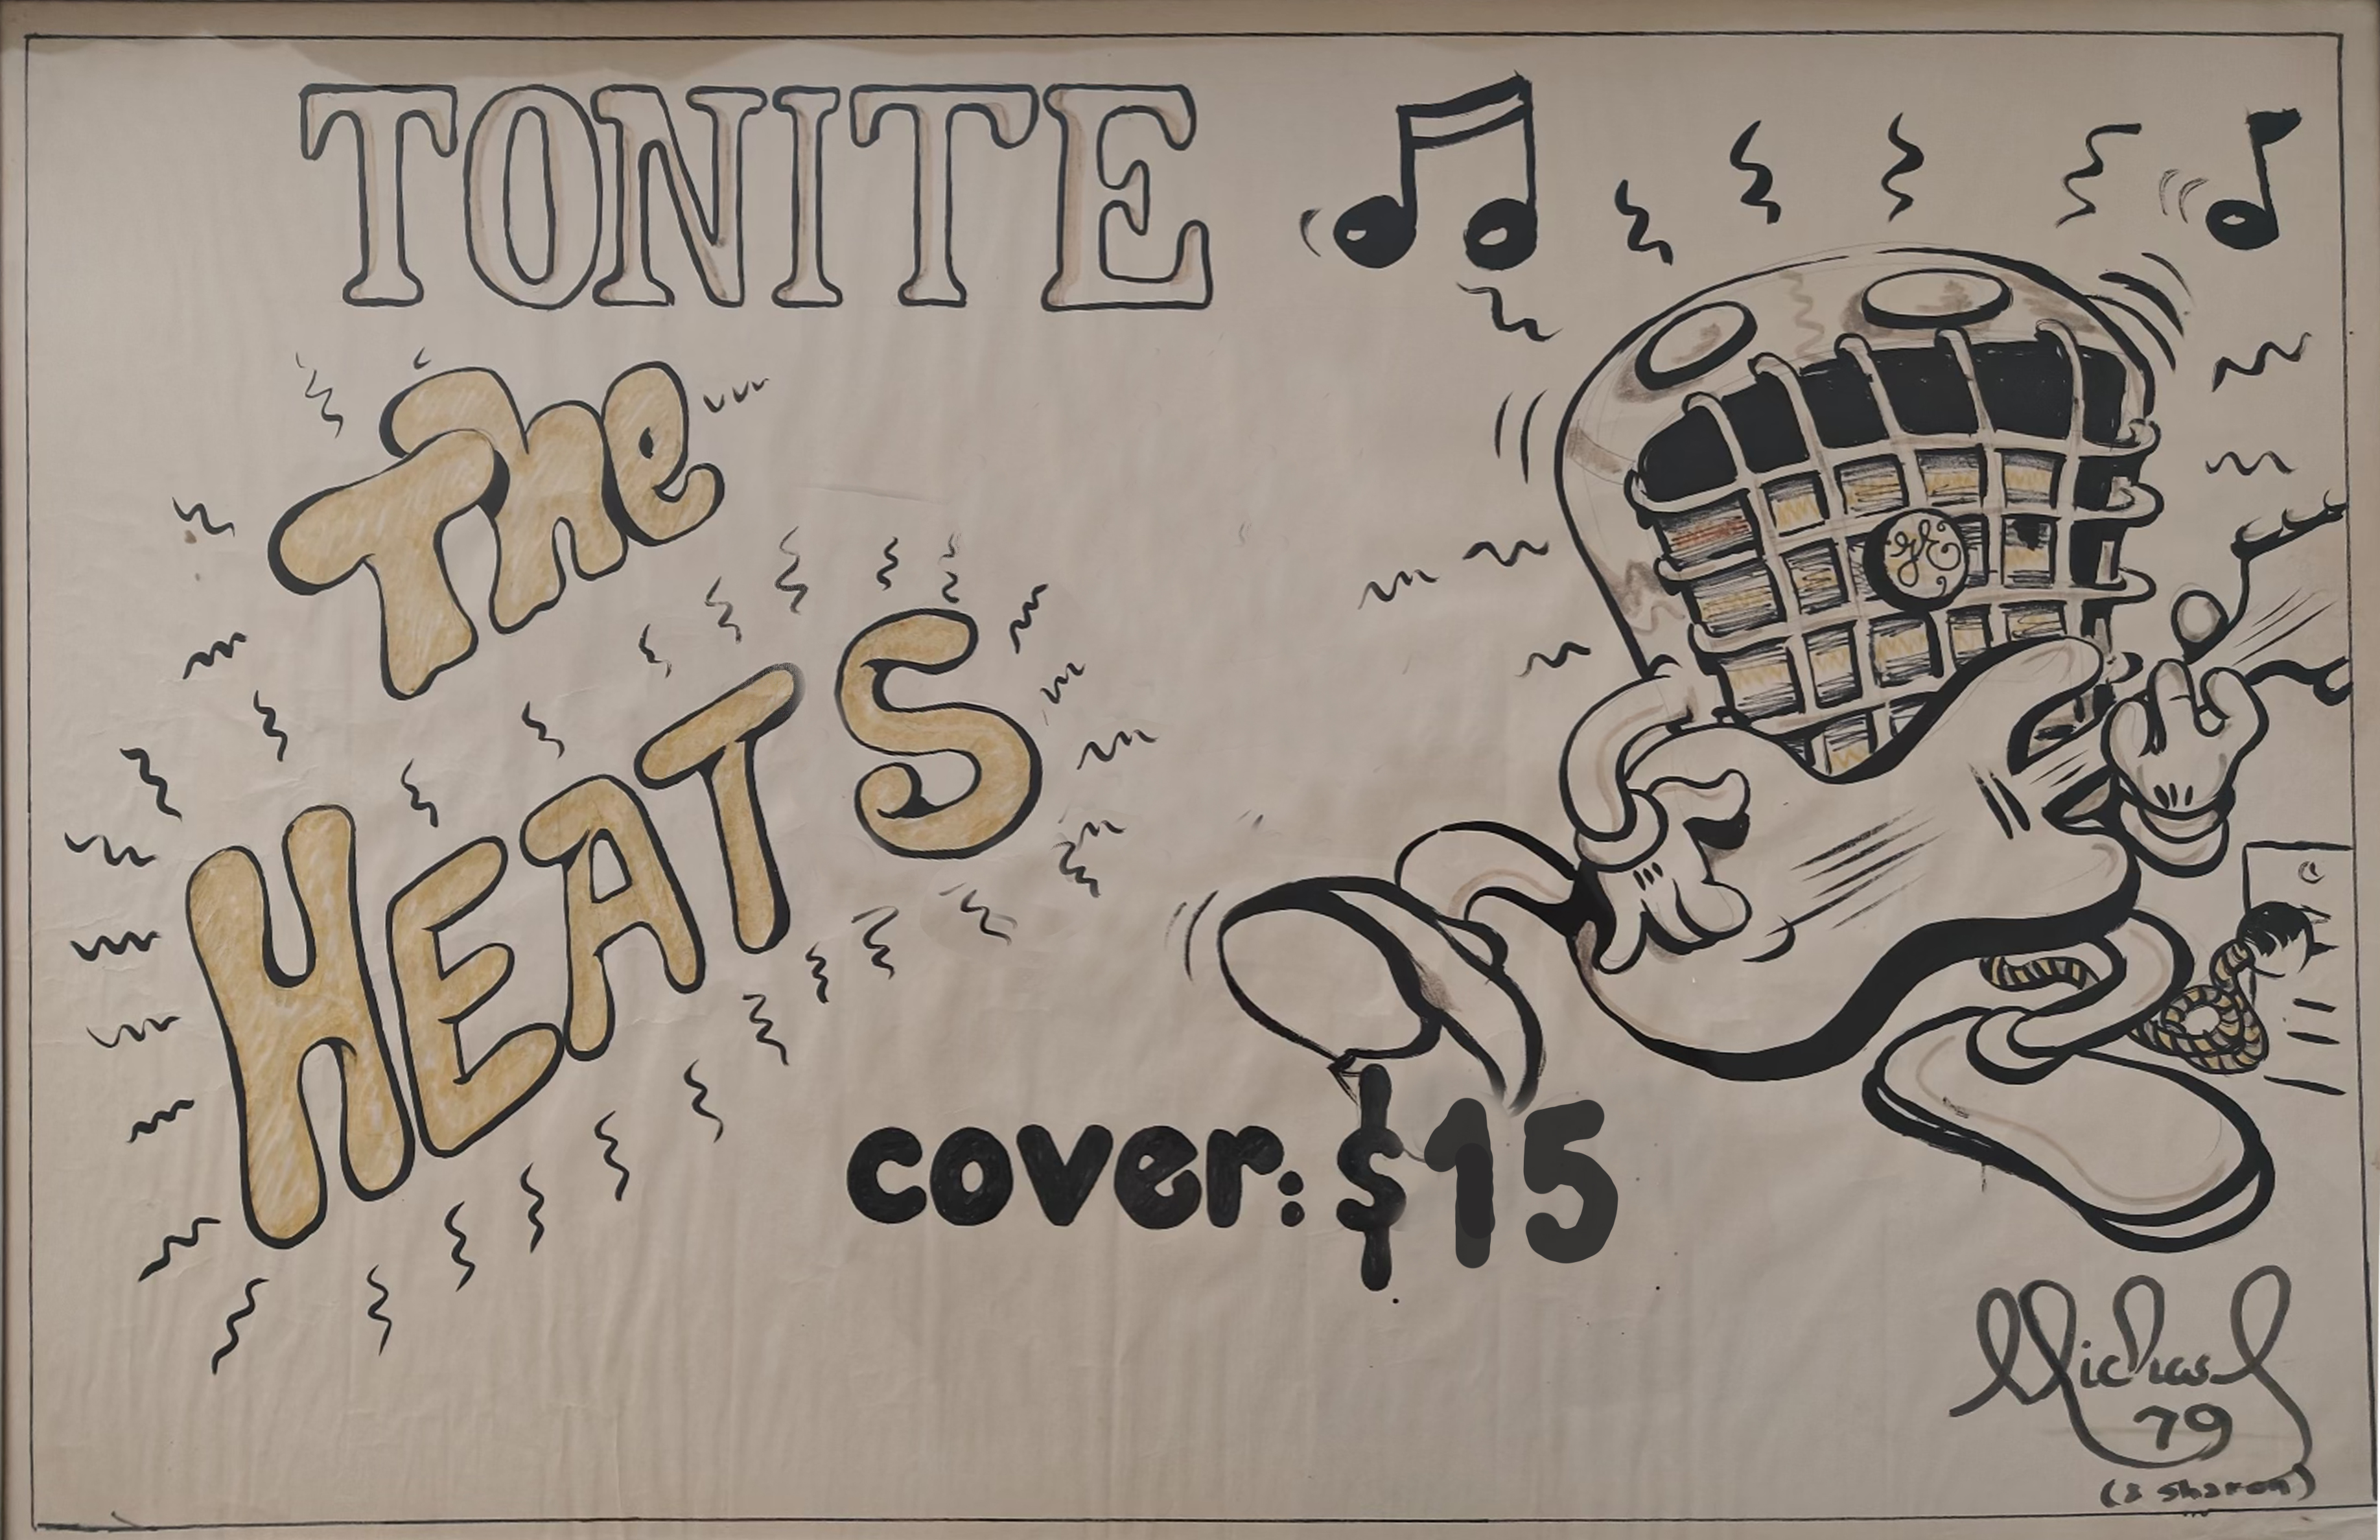 TONITE
The
HEATS
GE
cover: $15
Michael
79
(& Sharon)